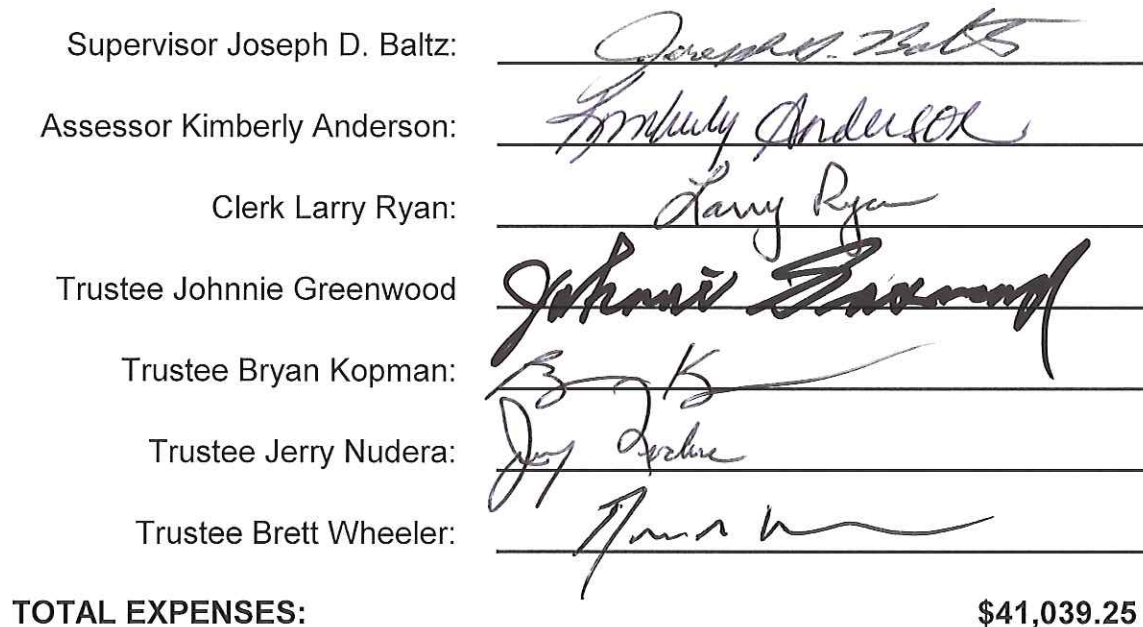 Supervisor Joseph D. Baltz: Joseph D. Baltz
Assessor Kimberly Anderson: Kimberly Anderson
Clerk Larry Ryan: Larry Ryan
Trustee Johnnie Greenwood Johnnie Greenwood
Trustee Bryan Kopman:
Trustee Jerry Nudera: Jerry
Trustee Brett Wheeler:
TOTAL EXPENSES: $41,039.25